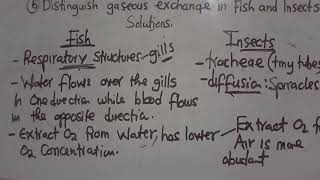 (b) Distinguish gaseous exchange in Fish and Insects
Solutions.
Fish
- Respiratory Structures - gills
- Water flows over the gills
in one direction while blood flows
in the opposite direction.
- Extract O2 from Water, has lower
O2 Concentration.
Insects
- tracheae (tiny tubes
- diffusion: Spiracles
- Extract O2 f
Air is more
abudant